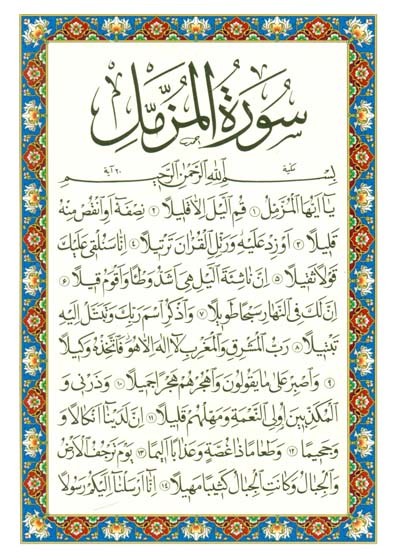 سورة المزمل
مكية
٢٠ آية
بسم الله الرحمن الرحيم
يا أيها المزمل ١ قم الليل إلا قليلا ٢ نصفه أو انقص منه
قليلا ٣ أو زد عليه ورتل القرآن ترتيلا ٤ إنا سنلقي عليك
قولا ثقيلا ٥ إن ناشئة الليل هي أشد وطئا وأقوم قيلا ٦
إن لك في النهار سبحا طويلا ٧ واذكر اسم ربك وتبتل إليه
تبتيلا ٨ رب المشرق والمغرب لا إله إلا هو فاتخذه وكيلا
٩ واصبر على ما يقولون واهجرهم هجرا جميلا ١٠ وذرني و
المكذبين أولي النعمة ومهلهم قليلا ١١ إن لدينا أنكالا و
جحيما ١٢ وطعاما ذا غصة وعذابا أليما ١٣ يوم ترجف الأرض
والجبال وكانت الجبال كثيبا مهيلا ١٤ إنا أرسلنا إليكم رسولا